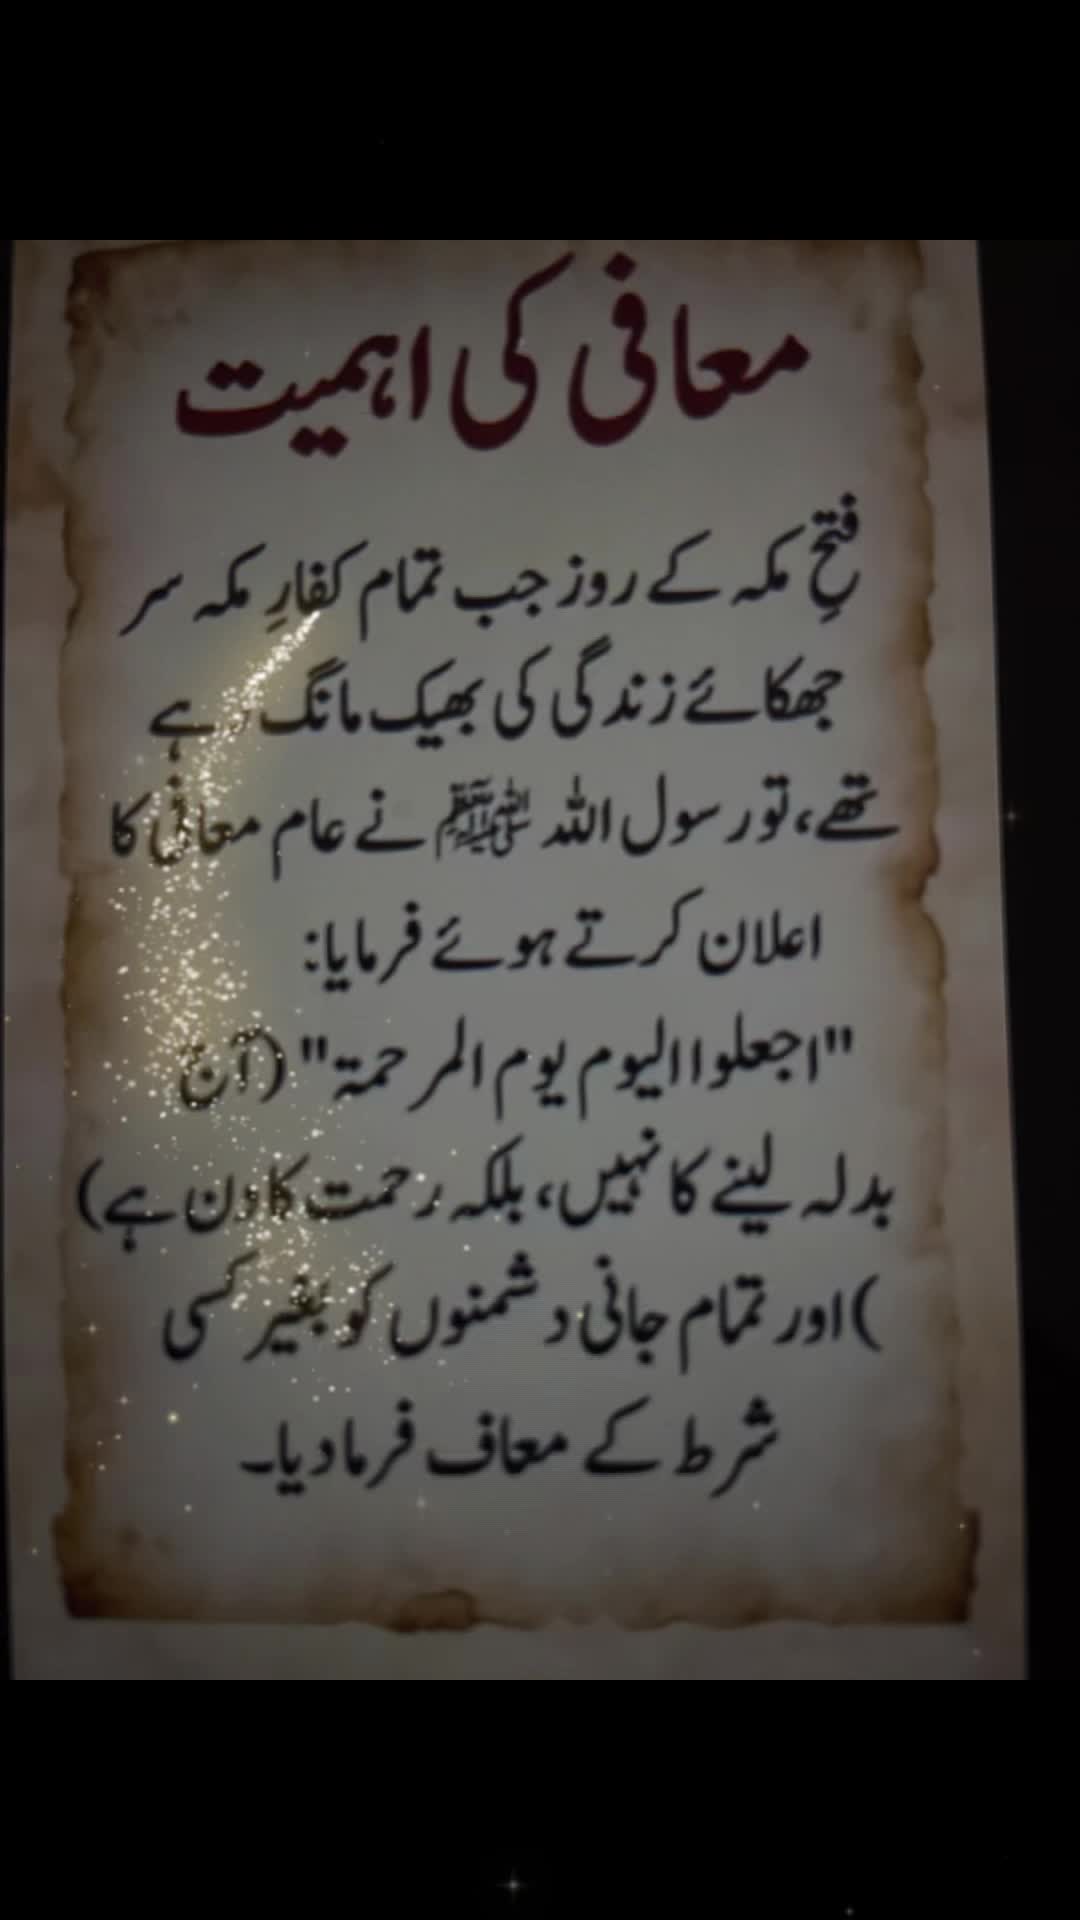 معافی کی اہمیت
فتحِ مکہ کے روز جب تمام کفارِ مکہ سر
جھکائے زندگی کی بھیک مانگ رہے
تھے، تو رسول اللہ ﷺ نے عام معافی کا
اعلان کرتے ہوئے فرمایا:
"اجعلوا الیوم یوم المرحمۃ" (آج
بدلہ لینے کا نہیں، بلکہ رحمت کا دن ہے)
)اور تمام جانی دشمنوں کو بغیر کسی
شرط کے معاف فرما دیا۔